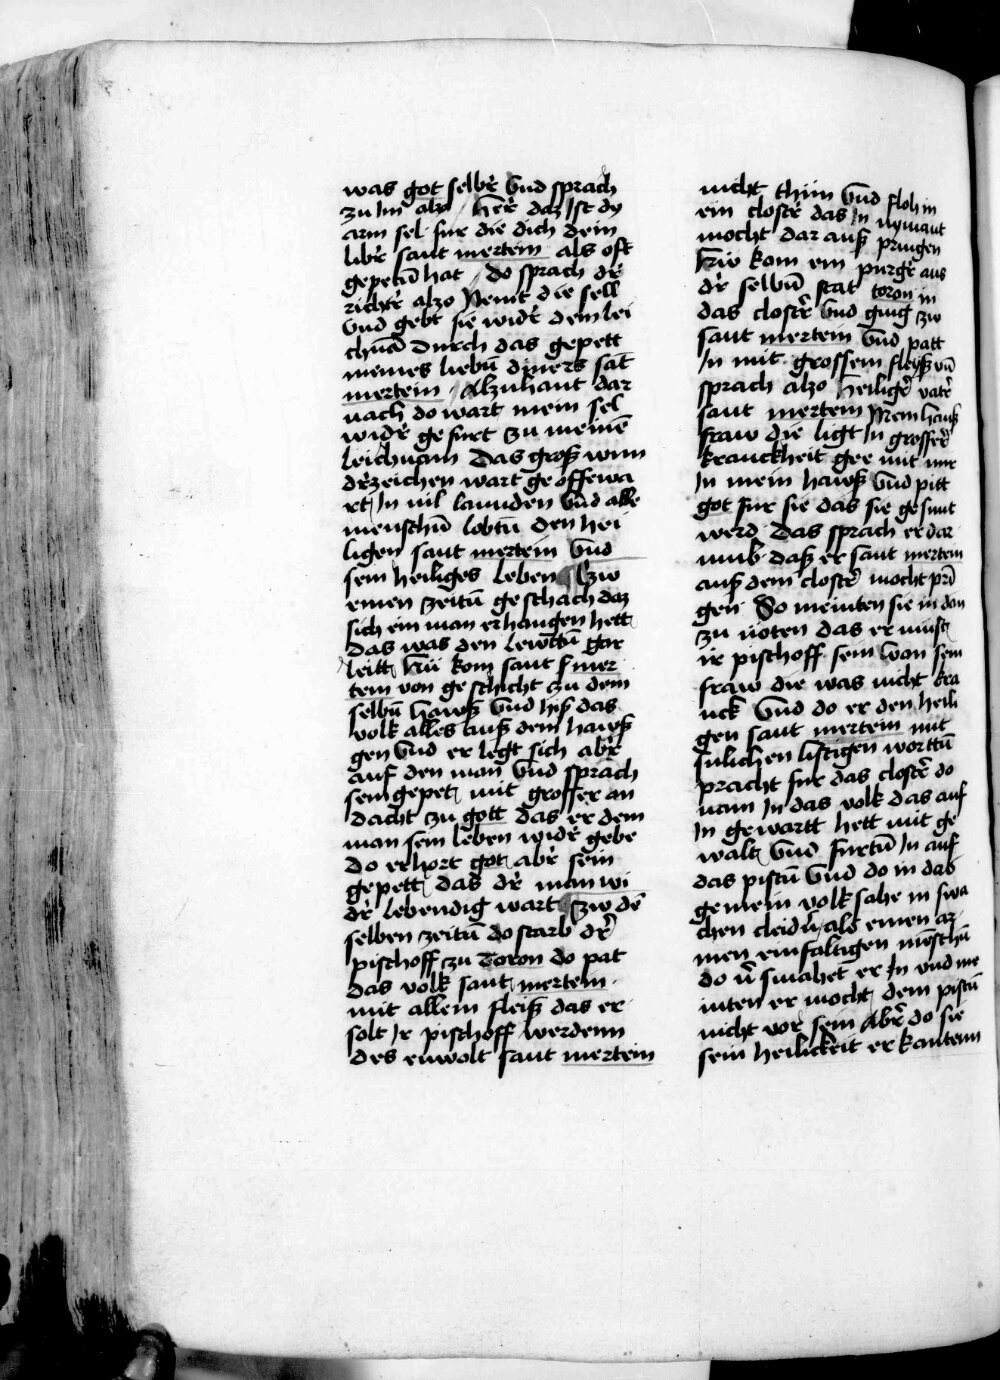 was got selbr̄ vnd sprach
zu im alzo / herr̄ daz ist dy
arm sel fur die dich dein
libr̄ sant mertein als oft
gepetn̄ hat / do sprach dr̄
richtr̄ alzo Nemt die sell
vnd gebt sie widr̄ dem lei
chnā durch das gepett
meines liebn̄ diners sāt
mertein / Alzuhant dar
nach do wart mein sel
widr̄ gefurt zu meinē
leichnam Das groß wun
dr̄zeichen wart geoffewa
rt In uil lannden vnd alle
menschn̄ lobtn̄ den hei
ligen sant mertein vnd
sein heiliges leben Zw
einen zeitn̄ geschach daz
sich ein man erhangen hett
das was den lewttn̄ gar
leitt Nu kom sant mer
tein von geschicht zu dem
selbn̄ hawß vnd hiß das
volk alles auß dem hawß
gen vnd er legt sich abr̄
auf den man vnd sprach
sein gepet mit grosser an
dacht zu gott das er dem
man sein leben widr̄ gebe
do erhort got abr̄ sein
gepett das dr̄ man wi
dr̄ lebendig wart Zw dē
selben zeitn̄ do starb dr̄
pischoff zu Toron do pat
das volk sant mertein
mit allem fleiß das er
solt Ir pischoff werdenn
des enwolt sant mertein
nicht thun vnd floh in
ein clostr̄ das In nymant
mocht dar auß pringen
Nw kom ein purgr̄ aus
dr̄ selbn̄ stat toron in
das clostr̄ vnd ging zw
sant mertein vnd patt
In mit grossem fleyß vn̄
sprach alzo heiligr̄ vatr̄
sant mertein Mein hauß
fraw die ligt In grosser̄
kranckheit gee mit mir
In mein hawß vnd pitt
got fur sie das sie gesunt
werd Das sprach er dar
umb daß er sant mertein
auß dem clostr̄ mocht prī
gen So meinten sie in dan
zu noten das er must
ir pischoff sein wan sein
fraw die was nicht kra
nck vnd do er den heili
gen sant mertein mit
sulichen listigen worttn̄
pracht fur das clostr̄ do
nam In das volk das auf
In gewartt hett mit ge
walt vnd furtn̄ In auf
das pistū vnd do in daß
gemein volk sahe in swa
chen cleidn̄ als einen ar
men einfaltigen mēschn̄
do v̄smahet er In vnd me
inten er mocht dem pistū
nicht vor sein Abr̄ do sie
sein heilickeit erkantenn